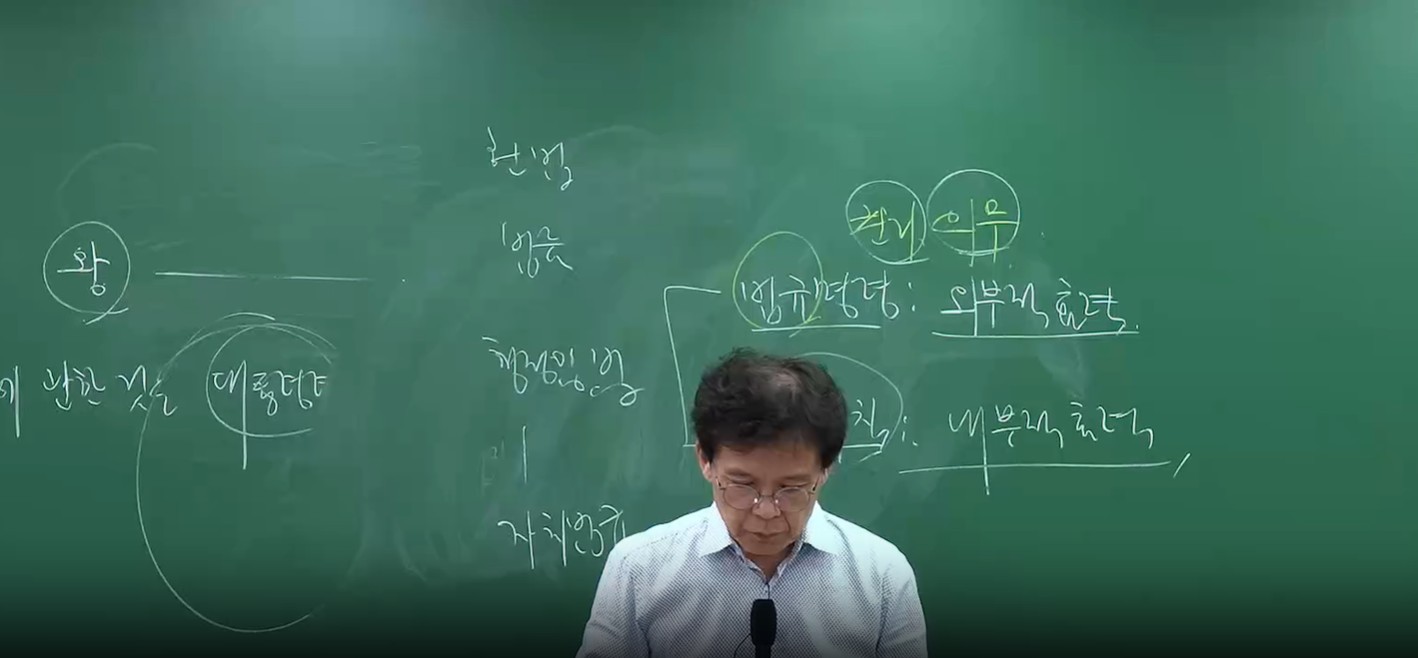 헌법
법률
행정입법
자치법규
왕
에 관한 것은 대통령령
권리 의무
법규명령: 외부적 효력
칙: 내부적 효력